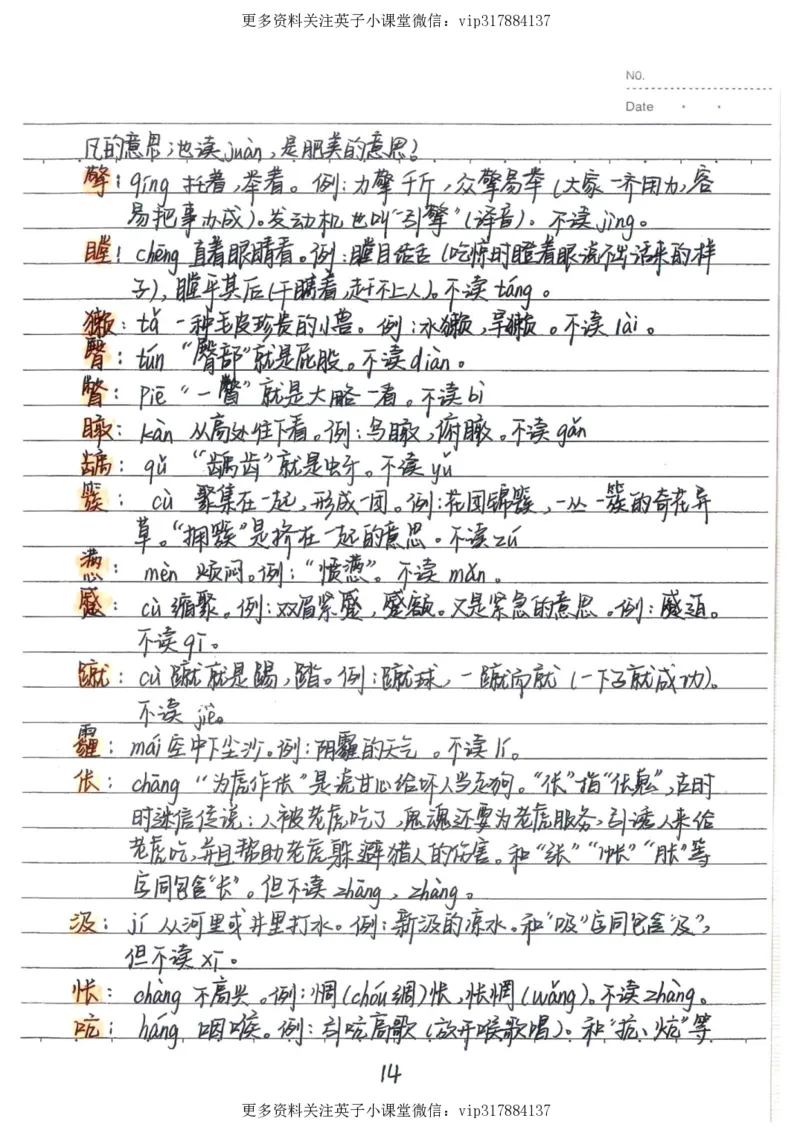 更多资料关注英子小课堂微信：vip317884137
NO.
Date
凡的意思；也读juàn，是肥美的意思？
擎：qíng 托着，举着。例：力擎千斤，众擎易举（大家一齐用力，容
易把事办成）。发动机也叫“引擎”（译音）。不读jìng。
瞠：chēng 直着眼睛看。例：瞠目结舌（吃惊时瞪着眼说不出话来的样
子），瞠乎其后（干瞒着，赶不上人）。不读táng。
獭：tǎ 一种毛皮珍贵的小兽。例：水獭，旱獭。不读lài。
臀：tún “臀部”就是屁股。不读diàn。
瞥：piē “一瞥”就是大略一看。不读bì
瞰：kàn 从高处往下看。例：鸟瞰，俯瞰。不读gǎn
龋：qǔ “龋齿”就是虫牙。不读yǔ
簇：cù 聚集在一起，形成一团。例：花团锦簇，一丛一簇的奇花异
草。“拥簇”是挤在一起的意思。不读zú
懑：mèn 烦闷。例：“愤懑”。不读mǎn。
蹙：cù 缩聚。例：双眉紧蹙，蹙额。又是紧急的意思。例：蹙迫。
不读qī。
蹴：cù 蹴就是踢，踏。例：蹴球，一蹴而就（一下子就成功）。
不读jiù。
霾：mái 空中下尘沙。例：阴霾的天气。不读lí。
伥：chāng “为虎作伥”是说甘心给坏人当走狗。“伥”指“伥鬼”，古时
时迷信传说：人被老虎吃了，鬼魂还要为老虎服务，引诱人来给
老虎吃，并且帮助老虎躲避猎人的伤害。和“张”“帐”“胀”等
字同包含“长”。但不读zhāng，zhàng。
汲：jí 从河里或井里打水。例：新汲的凉水。和“吸”字同包含“及”，
但不读xī。
怅：chàng 不高兴。例：惆（chóu绸）怅，怅惘（wǎng）。不读zhàng。
吭：háng 咽喉。例：引吭高歌（放开喉歌唱）。和“抗、炕”等
14
更多资料关注英子小课堂微信：vip317884137